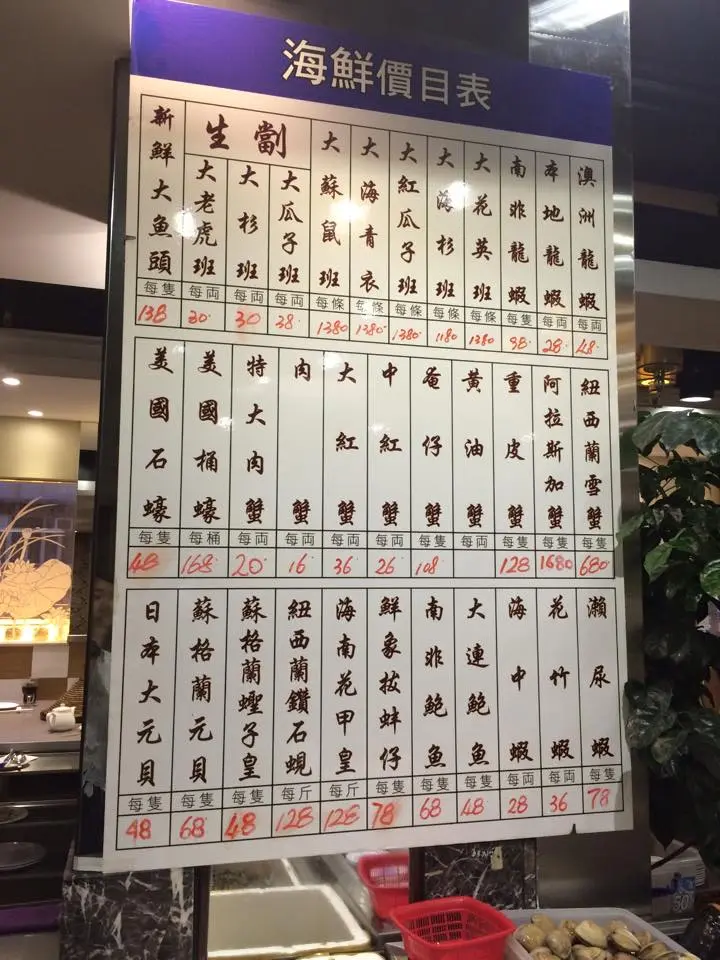 海鮮價目表
澳洲龍蝦 每両 48
本地龍蝦 每両 28
南非龍蝦 每隻 98
大花英班 每條 1380
大海杉班 每條 1180
大紅瓜子班 每條 1380
大海青衣 每條 1380
大蘇鼠班 每條 1380
生劏
大瓜子班 每両 38
大杉班 每両 30
大老虎班 每両 30
新鮮大魚頭 每隻 138
紐西蘭雪蟹 每隻 680
阿拉斯加蟹 每隻 1680
重皮蟹 每隻 128
黃油蟹 每両
奄仔蟹 每隻 108
中紅蟹 每両 26
大紅蟹 每両 36
肉蟹 每両 16
特大肉蟹 每両 20
美國桶蠔 每桶 168
美國石蠔 每隻 48
瀨尿蝦 每隻 78
花竹蝦 每両 36
海中蝦 每両 28
大連鮑魚 每隻 48
南非鮑魚 每隻 68
鮮象拔蚌仔 每隻 78
海南花甲皇 每斤 128
紐西蘭鑽石蜆 每斤 128
蘇格蘭蟶子皇 每隻 48
蘇格蘭元貝 每隻 68
日本大元貝 每隻 48